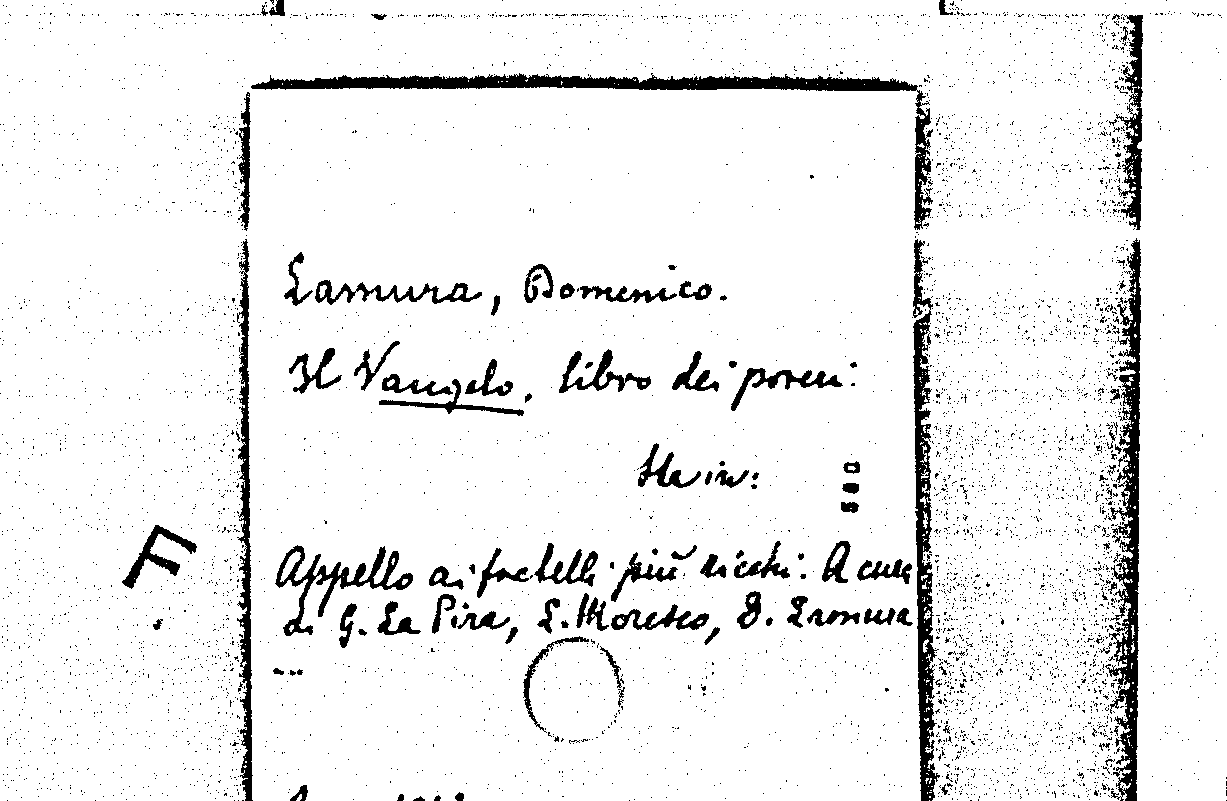 Lamura, Domenico.
Il Vangelo, libro dei poveri.
Sta in:
540
F.
Appello ai fratelli più ricchi. A cura
di G. La Pira, L. Moresco, D. Lamura
...